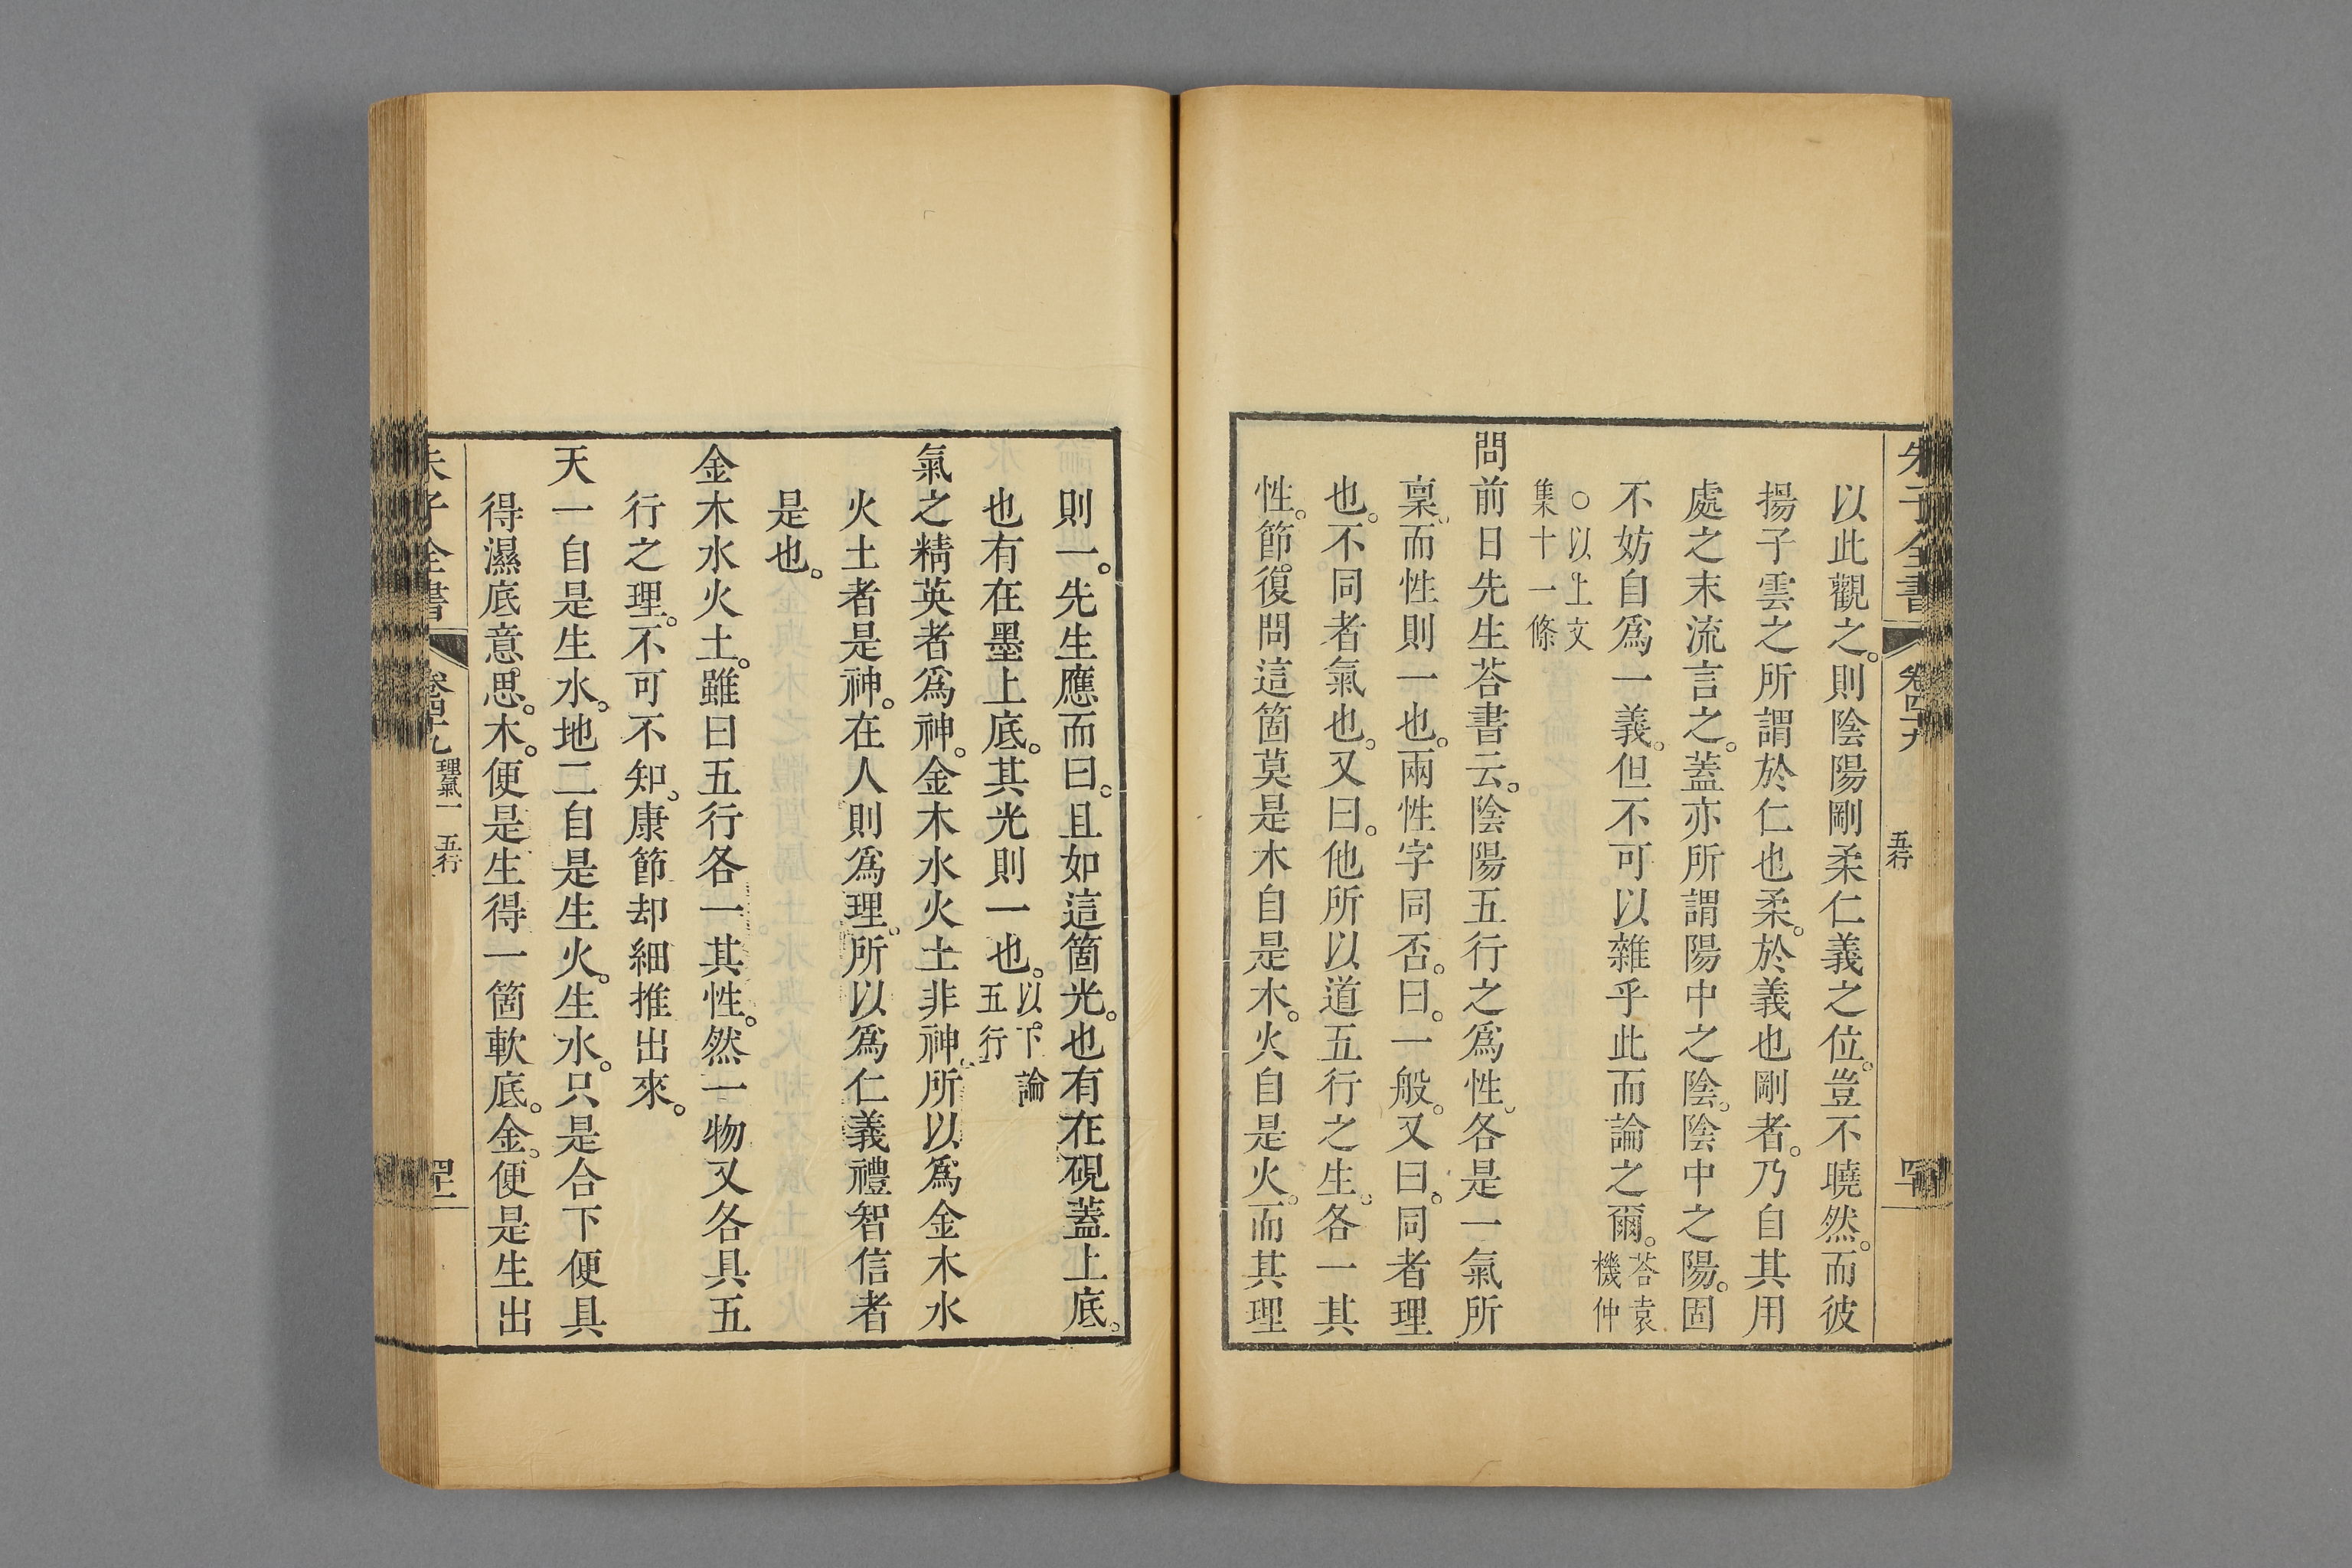 朱子全書 卷四十九 五行 四十
以此觀之。則陰陽剛柔仁義之位。豈不曉然。而彼
揚子雲之所謂於仁也柔。於義也剛者。乃自其用
處之末流言之。蓋亦所謂陽中之陰。陰中之陽。固
不妨自爲一義。但不可以雜乎此而論之爾。荅袁機仲
○以上文集十一條
問前日先生荅書云。陰陽五行之爲性。各是一氣所
稟。而性則一也。兩性字同否。曰。一般。又曰。同者理
也。不同者氣也。又曰。他所以道五行之生。各一其
性。節。復問這箇莫是木自是木。火自是火。而其理
則一。先生應而曰。且如這箇光。也有在硯蓋上底。
也有在墨上底。其光則一也。以下論五行
氣之精英者爲神。金木水火土非神。所以爲金木水
火土者是神。在人則爲理。所以爲仁義禮智信者
是也。
金木水火土。雖曰五行各一其性。然一物又各具五
行之理。不可不知。康節却細推出來。
天一自是生水。地二自是生火。生水。只是合下便具
得濕底意思。木。便是生得一箇軟底。金。便是生出
朱子全書 卷四十九 理氣一 五行